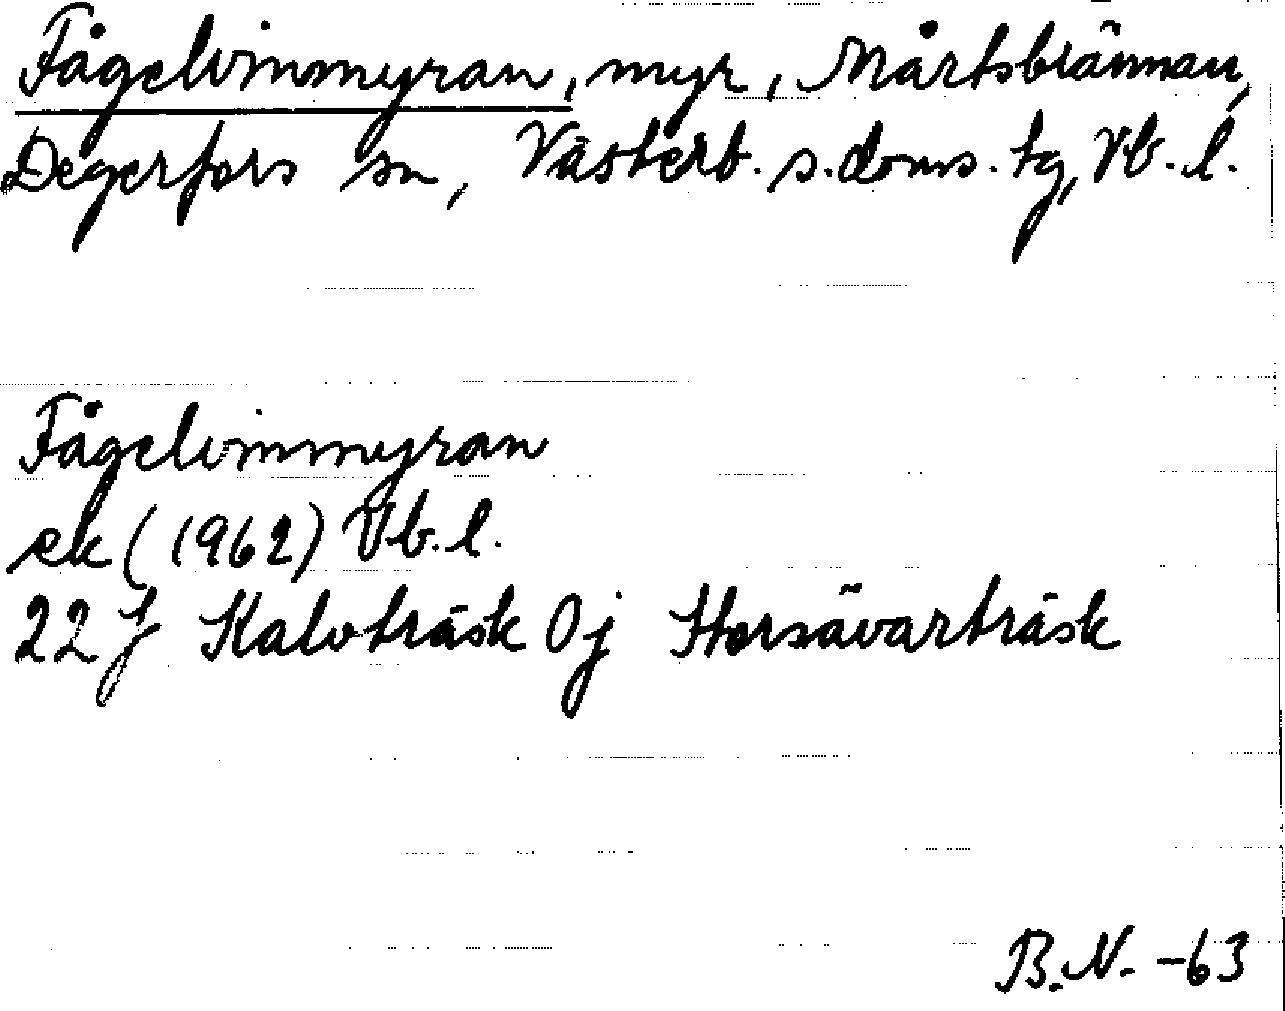 Fågelvinmyran, myr, Mårtsbrännan,
Degerfors sn, Västerb. s. doms. tg, Vb. l.
Fågelvinmyran
ek (1962) Vb. l.
22 J Kalvträsk 0j Horsåvarträsk
B.N. -63